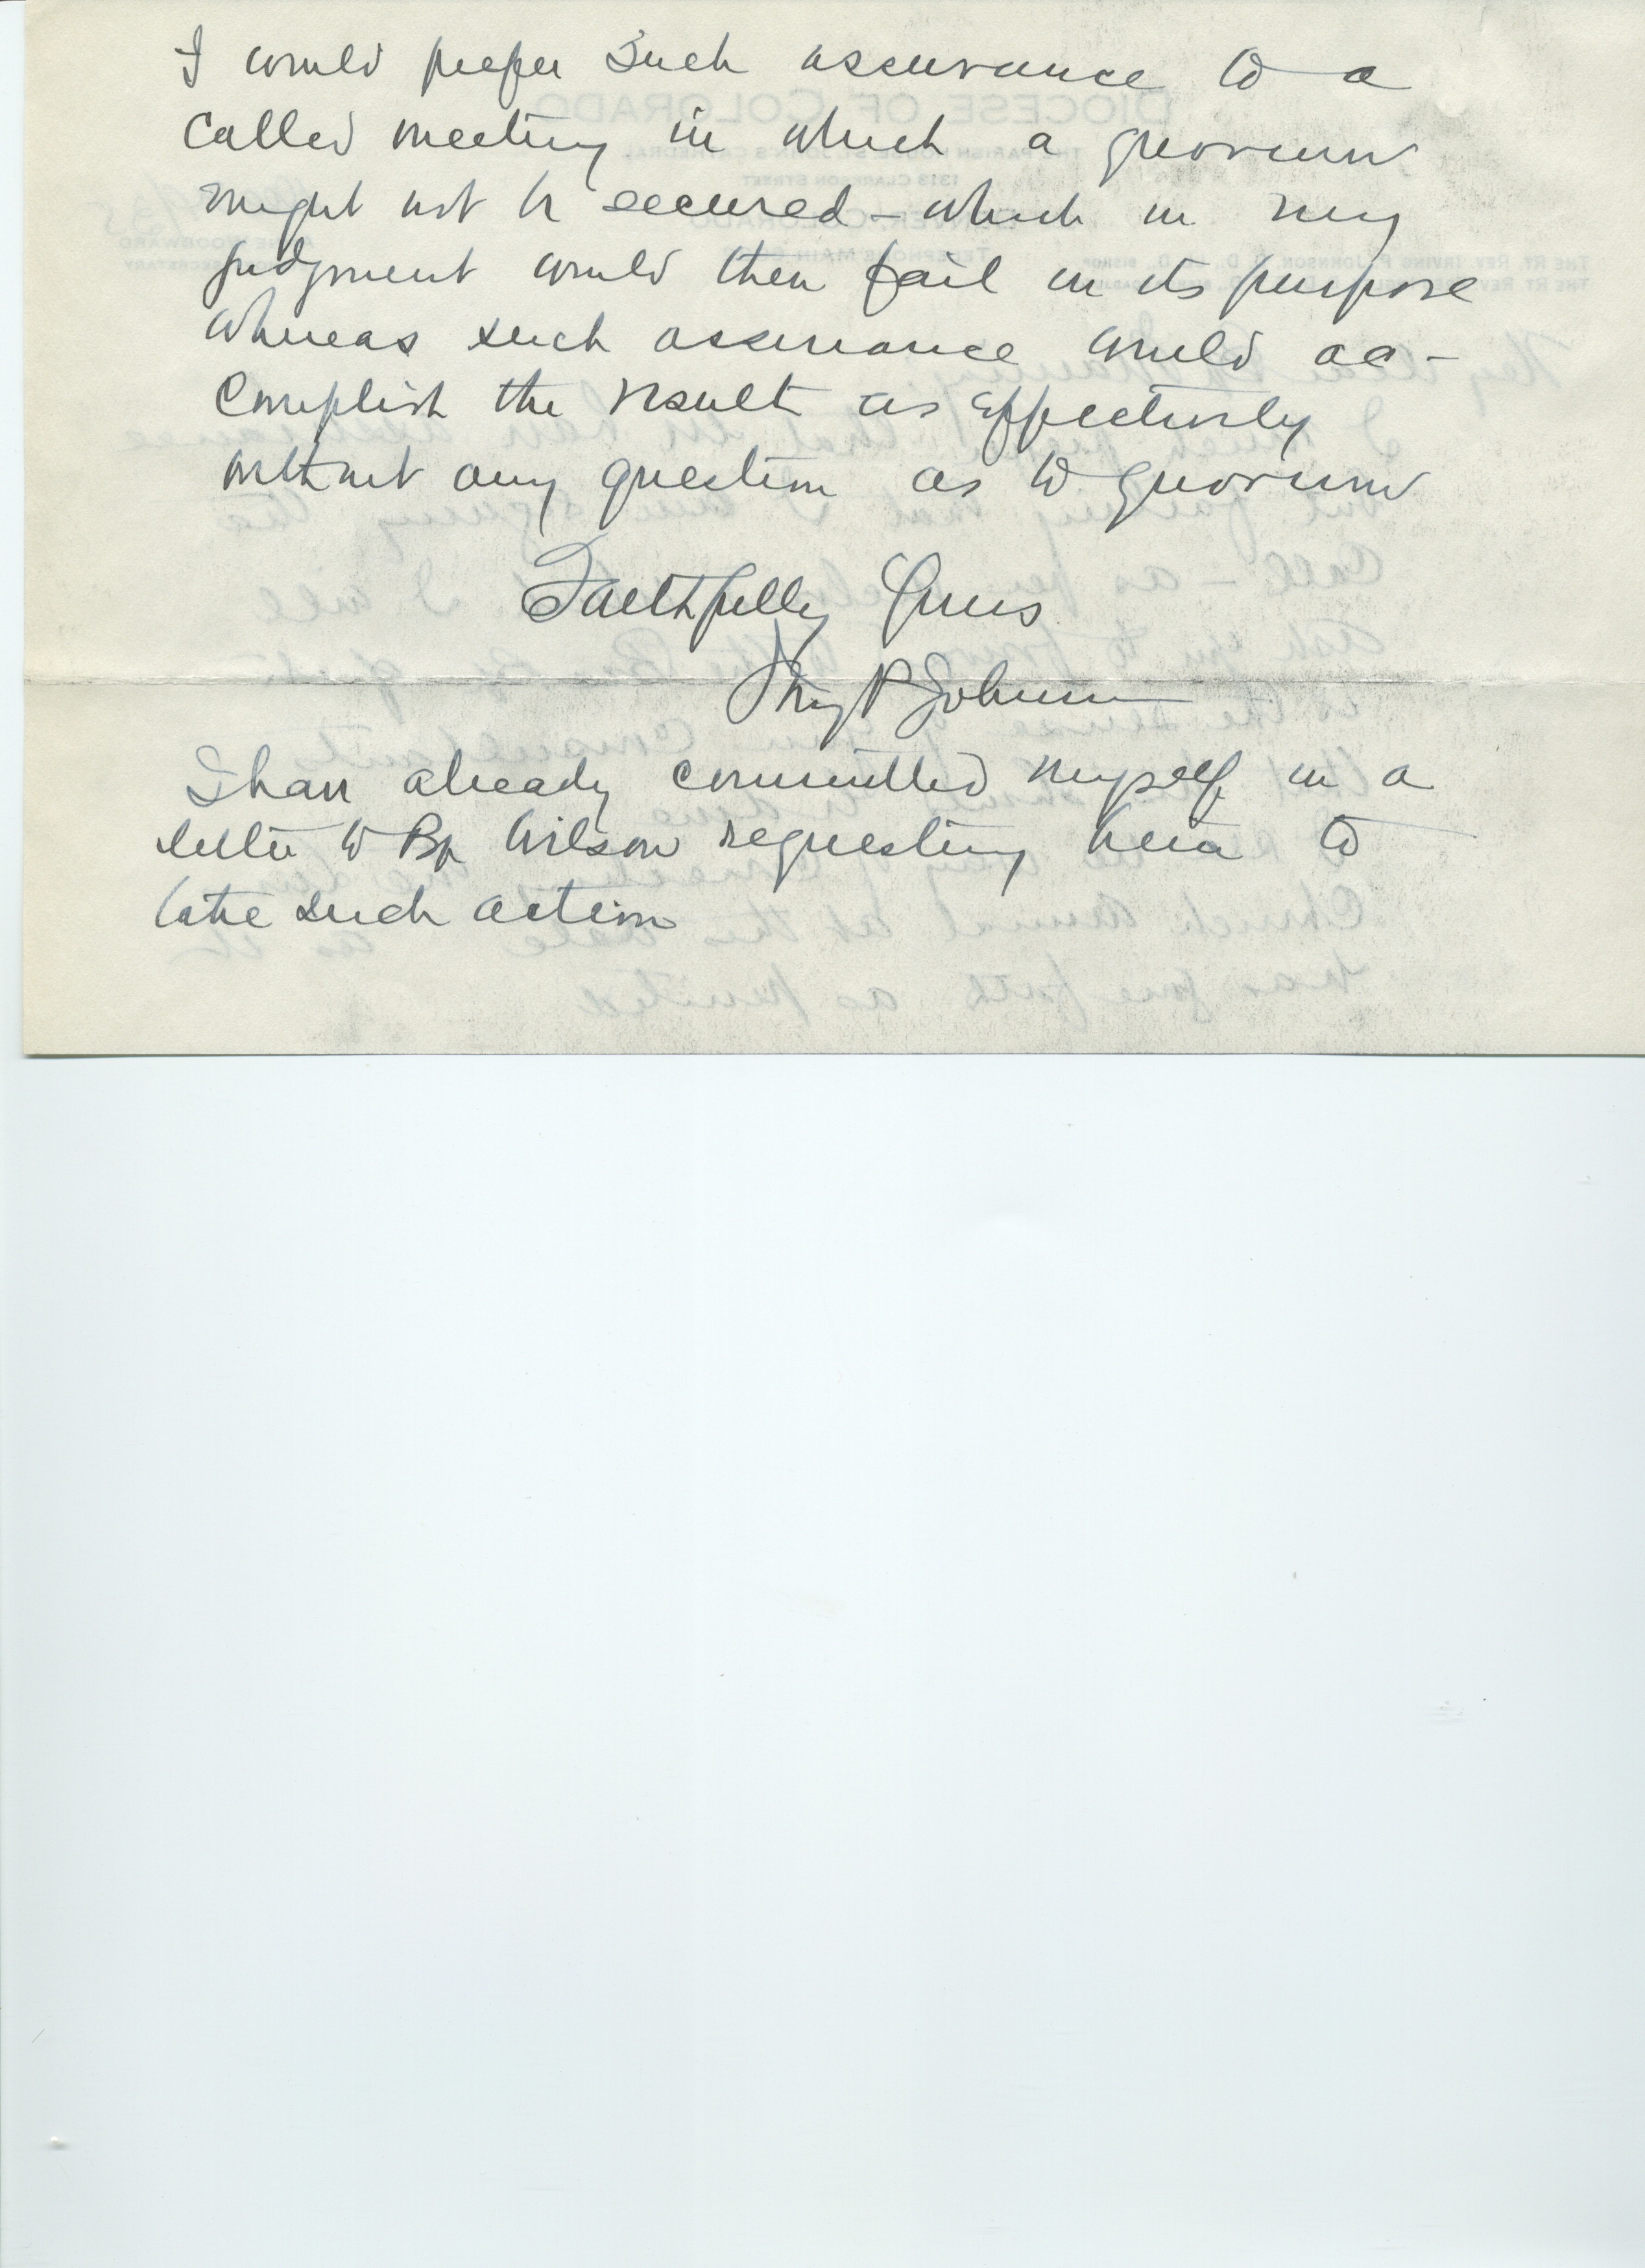 I would prefer such assurance to a
called meeting in which a quorum
might not be secured – which in my
judgment would then fail in its purpose
whereas such assurance would ac-
complish the result as effectively
without any question as to quorum
Faithfully Yours
Irving P Johnson
I have already committed myself in a
letter to Bp Wilson requesting him to
take such action